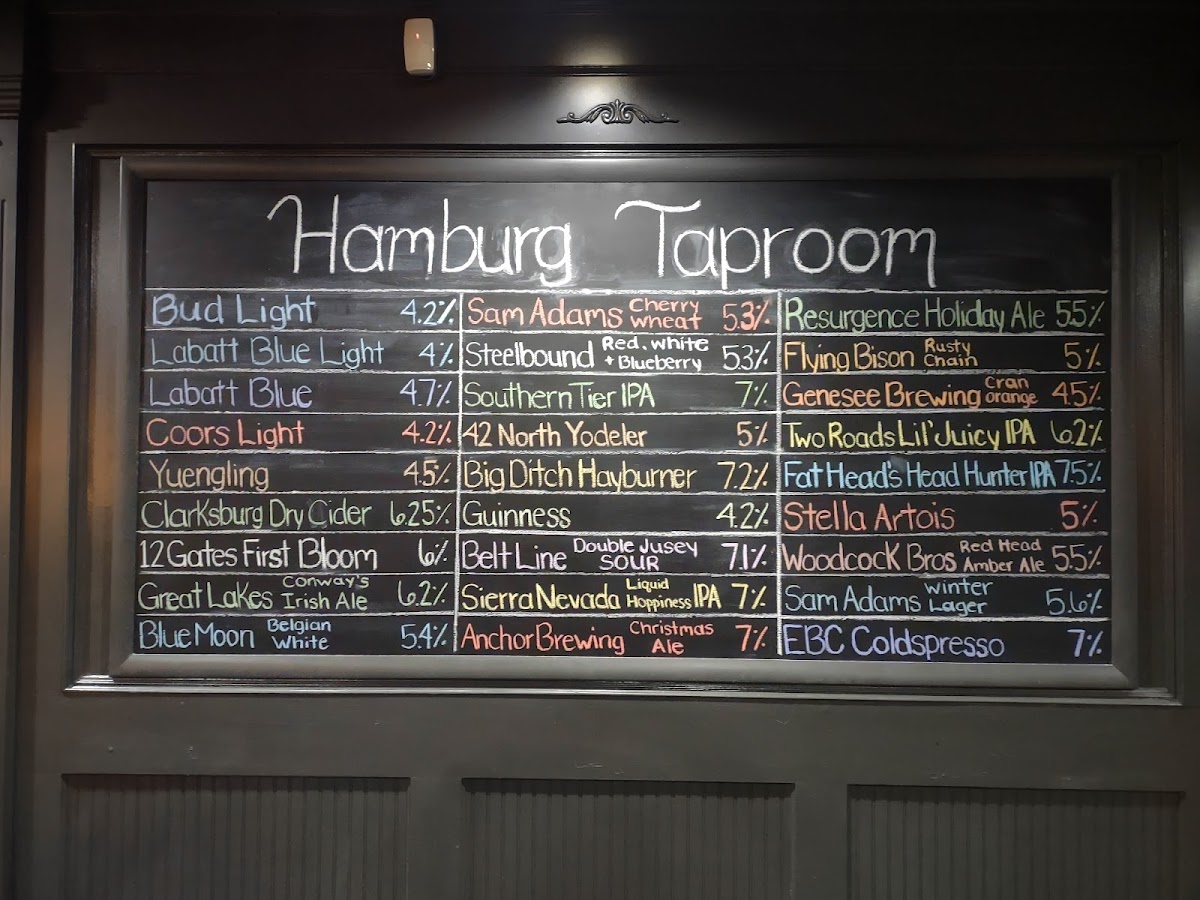 Hamburg Taproom
Bud Light 4.2%
Labatt Blue Light 4%
Labatt Blue 4.7%
Coors Light 4.2%
Yuengling 4.5%
Clarksburg Dry Cider 6.25%
12 Gates First Bloom 6%
Great Lakes Conway's Irish Ale 6.2%
Blue Moon Belgian White 5.4%
Sam Adams Cherry Wheat 5.3%
Steelbound Red, White + Blueberry 5.3%
Southern Tier IPA 7%
42 North Yodeler 5%
Big Ditch Hayburner 7.2%
Guinness 4.2%
Belt Line Double Jusey SOUR 7.1%
Sierra Nevada Liquid Hoppiness IPA 7%
Anchor Brewing Christmas Ale 7%
Resurgence Holiday Ale 5.5%
Flying Bison Rusty Chain 5%
Genesee Brewing Cran Orange 4.5%
Two Roads Lil' Juicy IPA 6.2%
Fat Head's Head Hunter IPA 7.5%
Stella Artois 5%
Woodcock Bros Red Head Amber Ale 5.5%
Sam Adams Winter Lager 5.6%
EBC Coldspresso 7%